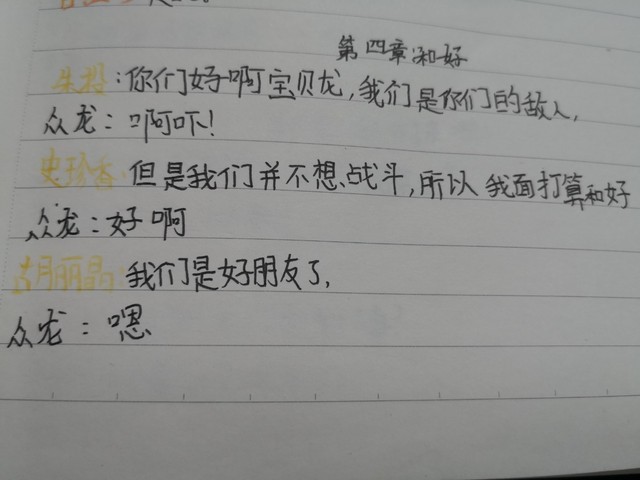 第四章:和好
朱投:你们好啊宝贝龙,我们是你们的敌人,
众龙:啊吓!
史珍香:但是我们并不想战斗,所以我面打算和好
众龙:好啊
古月丽晶:我们是好朋友了,
众龙:嗯